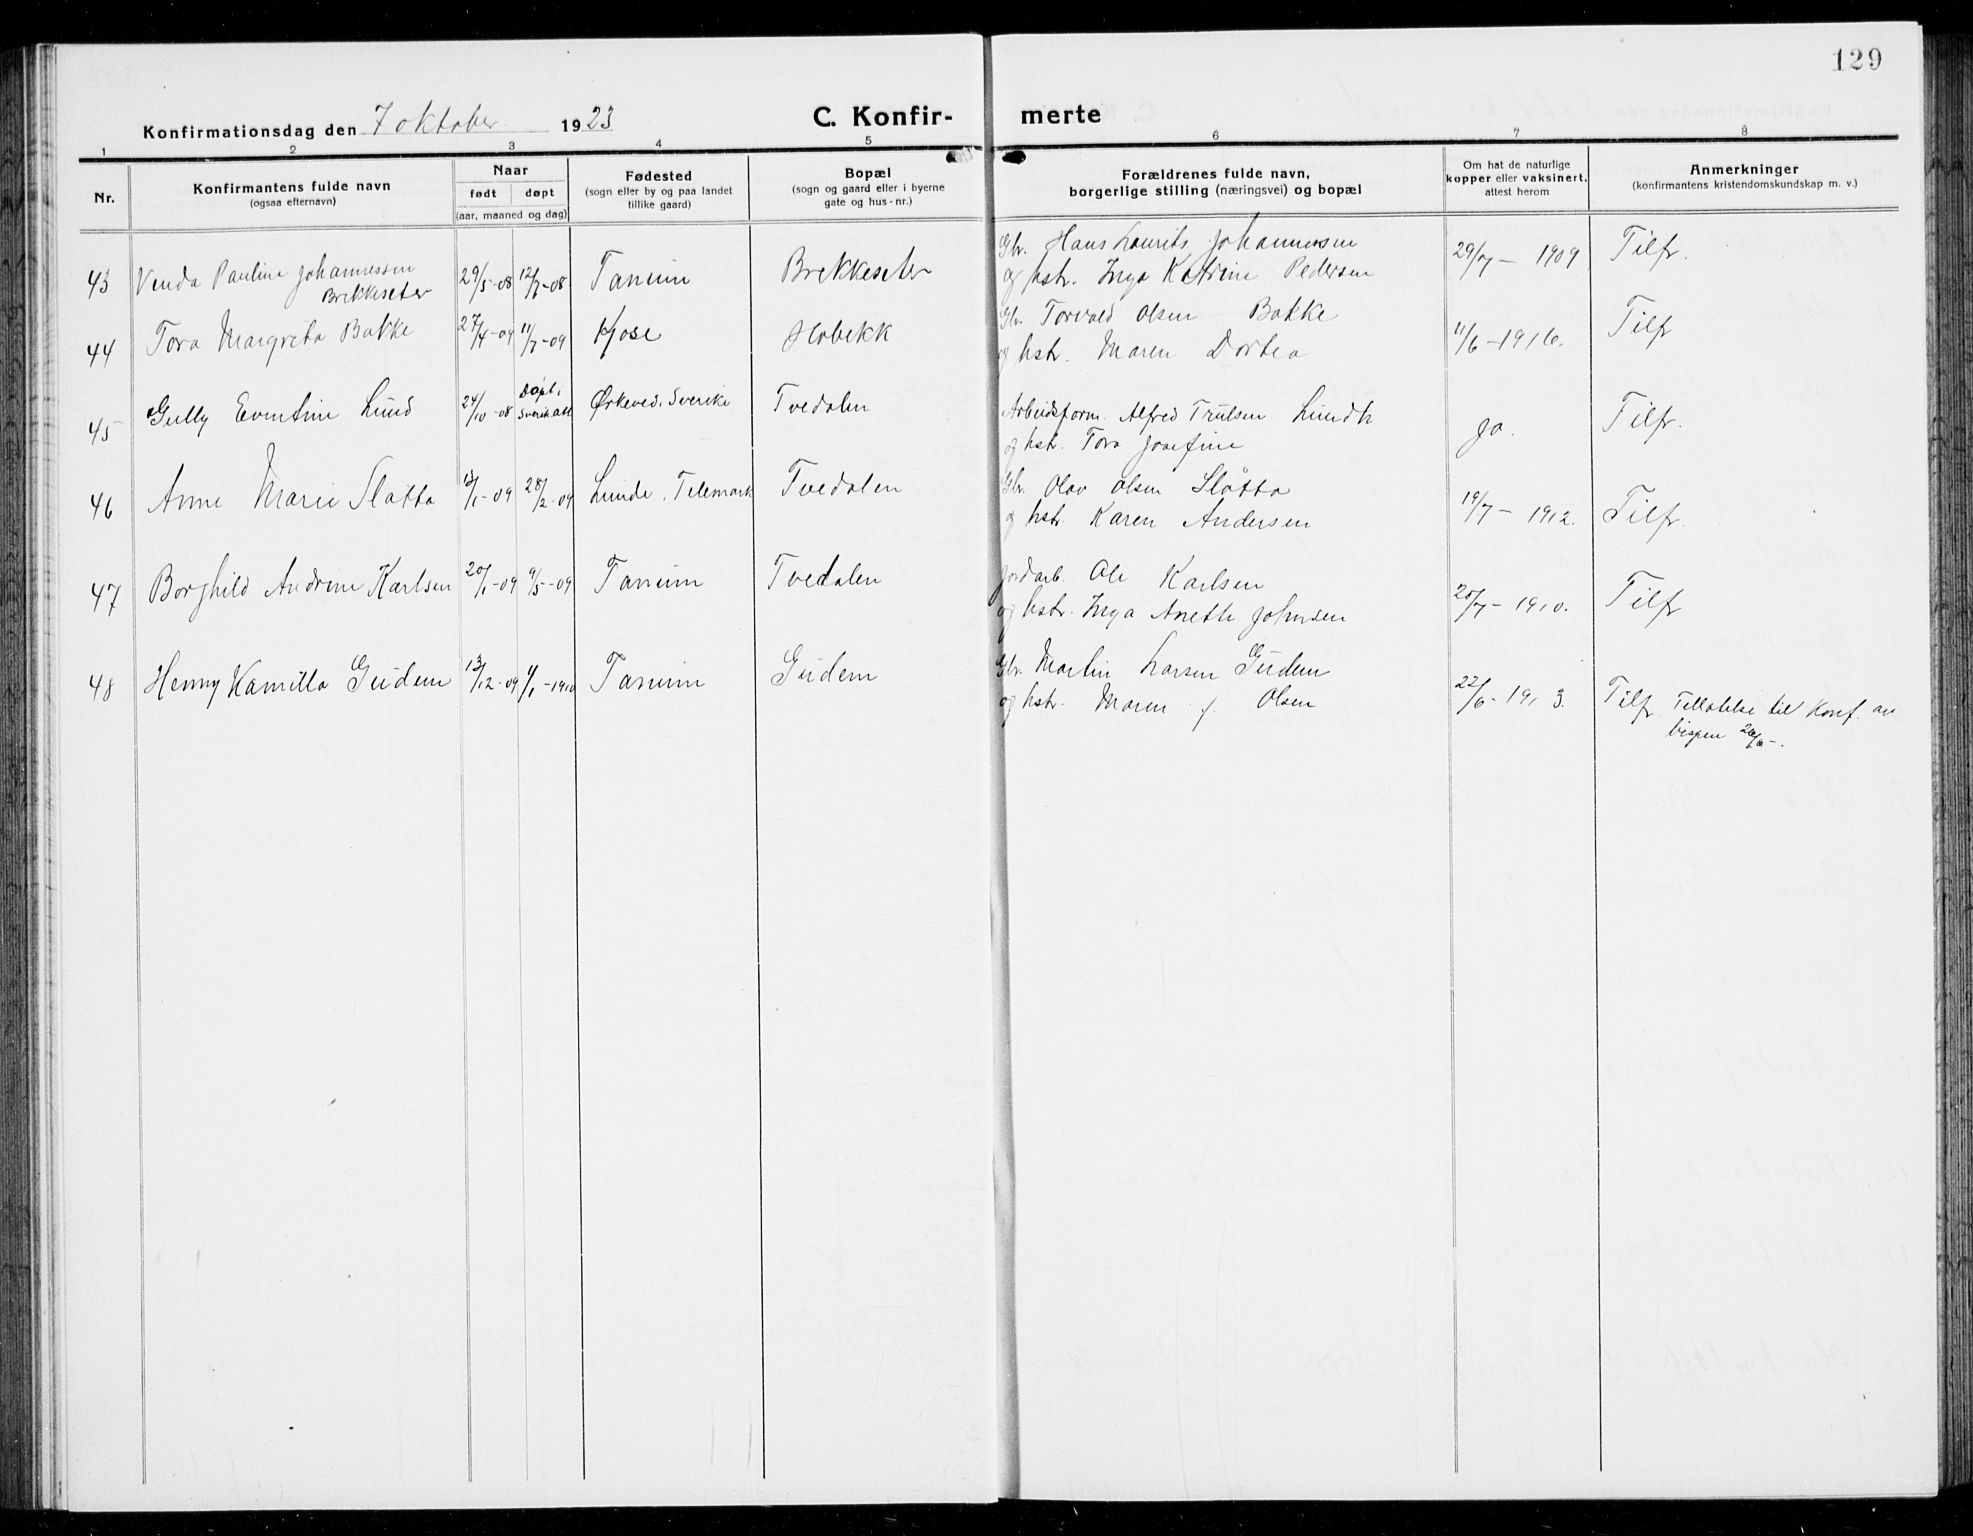 129
Konfirmationsdag den 7 oktober 1923
C. Konfir- merte
1 2 3 4 5 6 7 8
Nr.
Konfirmantens fulde navn
(ogsaa efternavn)
Naar
født døpt
(aar, maaned og dag)
Fødested
(sogn eller by og paa landet
tillike gaard)
Bopæl
(sogn og gaard eller i byerne
gate og hus-nr.)
Forældrenes fulde navn,
borgerlige stilling (næringsvei) og bopæl
Om hat de naturlige
kopper eller vaksinert,
attest herom
Anmerkninger
(konfirmantens kristendomskundskap m. v.)
43 Venda Pauline Johannessen 29/5-08 12/7-08 Tanum Brekkeseter Gbr. Hans Laurits Johannessen 29/7 - 1909 Tilfr.
Brekkeseter og hstr. Inga Katrine Pedersen
44 Tora Margreta Bakke 27/4-09 11/7-09 Kjose Hobekk Gbr. Torvald Olsen Bakke 11/6-1916. Tilfr.
og hstr. Maren Dortea
45 Gully Eventine Lund 24/10-08 Døpt i Ørkeved, Sverike Tvedalen Arbeidsform. Alfred Trulsen Lundh ja. Tilfr.
og hstr. Tora Josefine
46 Anne Marie Slåtta 13/1-09 28/2-09 Lunde, Telemark Tvedalen Gbr. Olav Olsen Slåtta 19/7 - 1912. Tilfr.
og hstr. Karen Andersen
47 Borghild Andrine Karlsen 20/1-09 9/5-09 Tanum Tvedalen Jordarb. Ole Karlsen 20/7 - 1910. Tilfr
og hstr. Inga Anethe Johnsen
48 Henny Kamilla Gudem 13/12-09 1/1-1910 Tanum Gudem Gbr. Martin Larsen Gudem 22/6-1913. Tilfr. Tillatelse til Konf. av
og hstr. Maren J. Olsen bispen 26/6-.